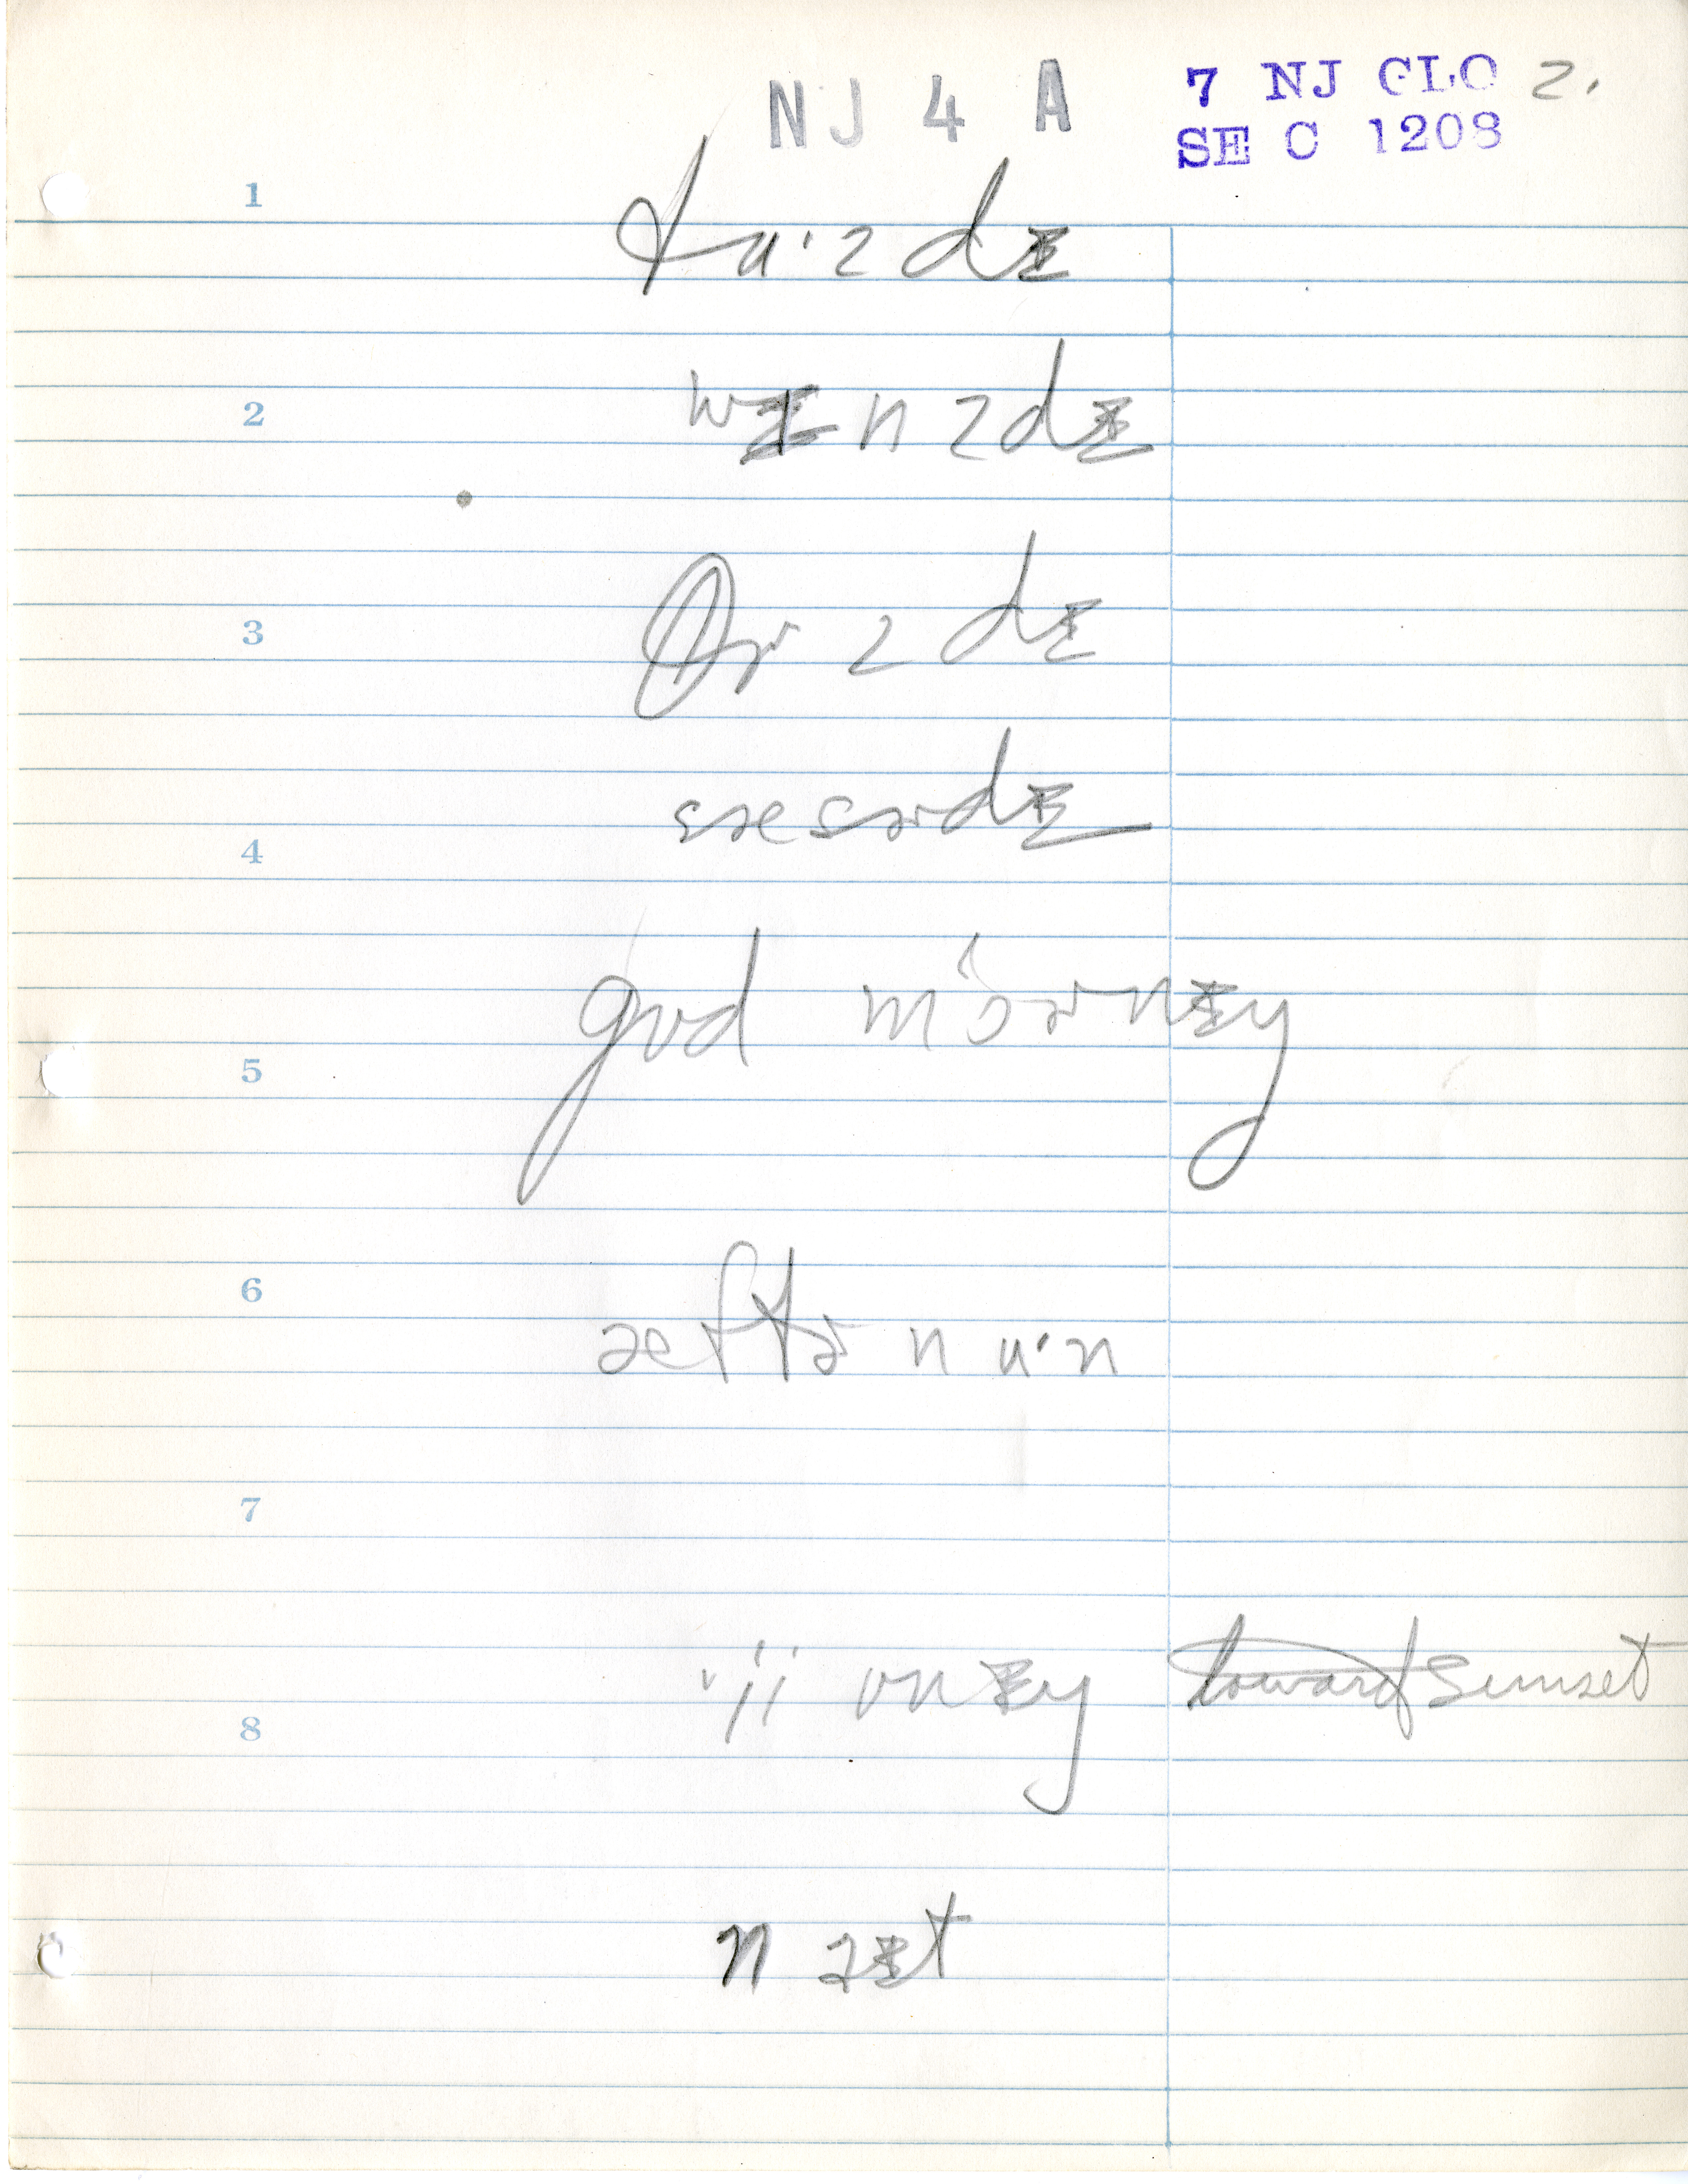 NJ 4 A 7 NJ GLO 2.
SE C 1208
1
tu·zdɪ
2
wɪnzdɪ
3
θɚzdɪ
4
sæsɚdɪ
gʊd mɔ́ɚnɪŋ
5
6
æftɚnu·n
7
ʊnɪŋ toward sunset
8
naɪt